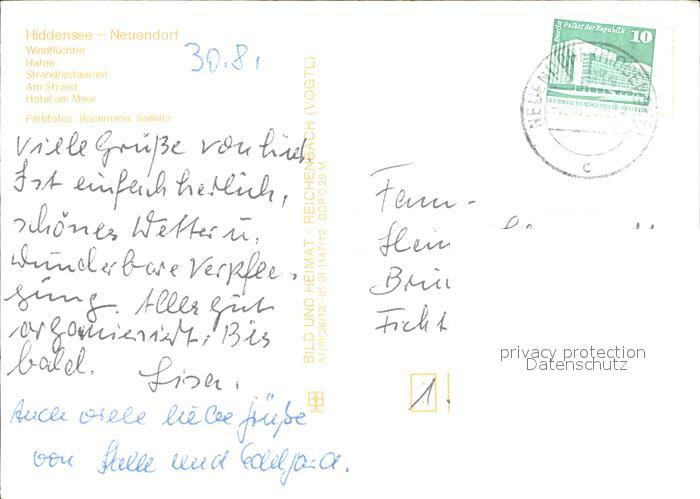 Hiddensee – Neuendorf
Windflüchter
Hafen
Strandrestaurant
Am Strand
Hotel am Meer
Farbfotos: Bachmann, Saßnitz
30.8.
Viele Grüße von hier.
Ist einfach herrlich,
schönes Wetter u.
wunderbare Verpfle-
gung. Alles gut
organisiert. Bis
bald. Lisa.
Auch viele liebe Grüße
von und
BILD UND HEIMAT · REICHENBACH (VOGTL)
A1/III/26/13 · 01 01 1147/12 DDR 0,20 M
Berlin Palast der Republik
10
DEUTSCHE DEMOKRATISCHE REPUBLIK
NEUENDORF
c
Fam.
1
privacy protection
Datenschutz